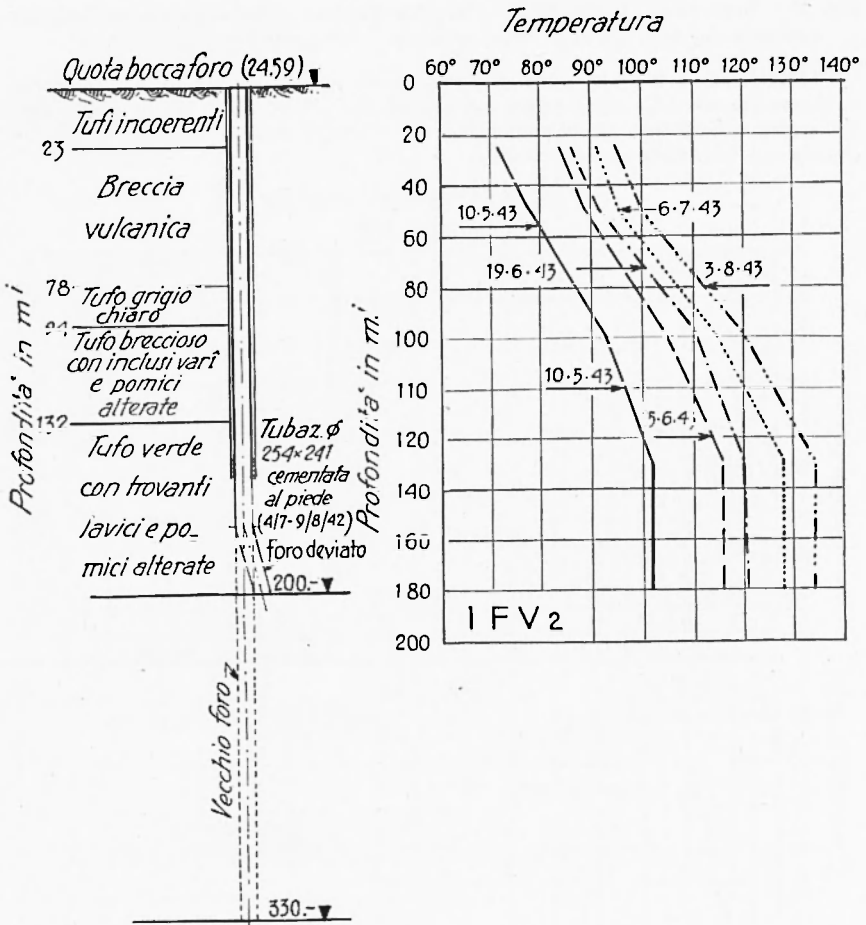 Temperatura
Quota bocca foro (24.59)
Tufi incoerenti
23
Breccia
vulcanica
78
Tufo grigio
chiaro
Tufo breccioso
con inclusi vari
e pomici
alterate
132
Tufo verde
con trovanti
lavici e po-
mici alterate
Profondita' in m'
Tubaz. ϕ
254×241
cementata
al piede
(4/7-9/8/42)
foro deviato
200.-
Vecchio foro
330.-
60° 70° 80° 90° 100° 110° 120° 130° 140°
0
20
40
60
80
100
110
120
130
160
180
200
Profondita' in m.
10.5.43
6.7.43
19.6.43
3.8.43
10.5.43
5.6.4
1 F V 2